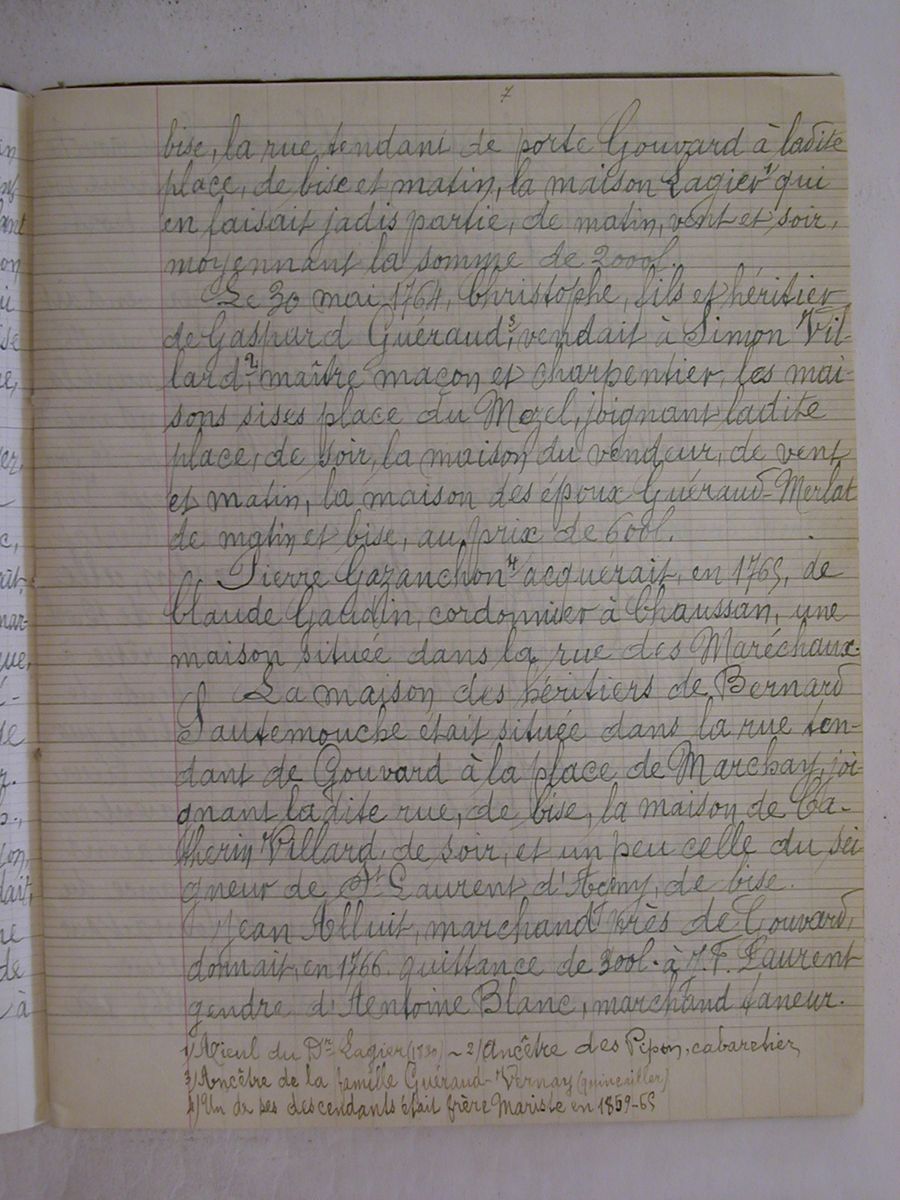 7
bise, la rue tendant de porte Gouvard à ladite
place, de bise et matin, la maison Lagier 1) qui
en faisait jadis partie, de matin, vent et soir,
moyennant la somme de 2000l.
Le 30 mai 1764, Christophe, fils et héritier
de Gaspard Guéraud 3), vendait à Simon Vil-
lard 2), maître maçon et charpentier, les mai-
sons sises place du Mezel, joignant ladite
place, de soir, la maison du vendeur, de vent
et matin, la maison des époux Guéraud-Merlat
de matin et bise, au prix de 600l.
Pierre Gazanchon 4) acquérait, en 1765, de
Claude Gaudin, cordonnier à Chaussan, une
maison située dans la rue des Maréchaux.
La maison des héritiers de Bernard
Sautemouche était située dans la rue ten-
dant de Gouvard à la place de Marchay, joi-
gnant ladite rue, de bise, la maison de Ca-
therin Villard, de soir, et un peu celle du sei-
gneur de St Laurent d'Agny, de bise.
Jean Alluit, marchand près de Gouvard,
donnait, en 1766 quittance de 300l. à J. F. Laurent
gendre d'Antoine Blanc, marchand taneur.
1) Aïeul du Dr Lagier ~ 2) Ancêtre des Pipon, cabaretier
3) Ancêtre de la famille Guéraud-Vernay (quincailler)
4) Un de ses descendants était frère Mariste en 1859-65